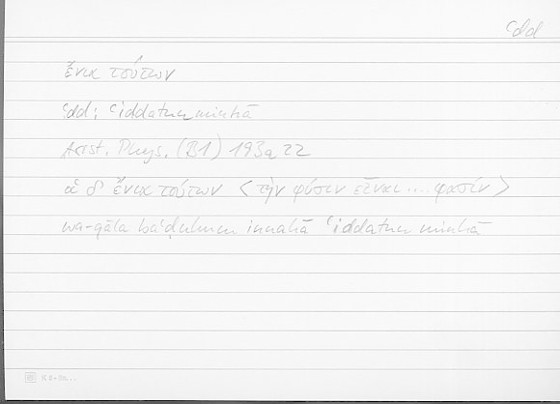 ʿdd
ἔνια τούτων
ʿdd: ʿiddatun minhā
Arist. Phys. (B1) 193a22
οἱ δ' ἔνια τούτων <τὴν φύσιν εἶναι .... φασίν>
wa-qāla baʿḍuhum innahā ʿiddatun minhā